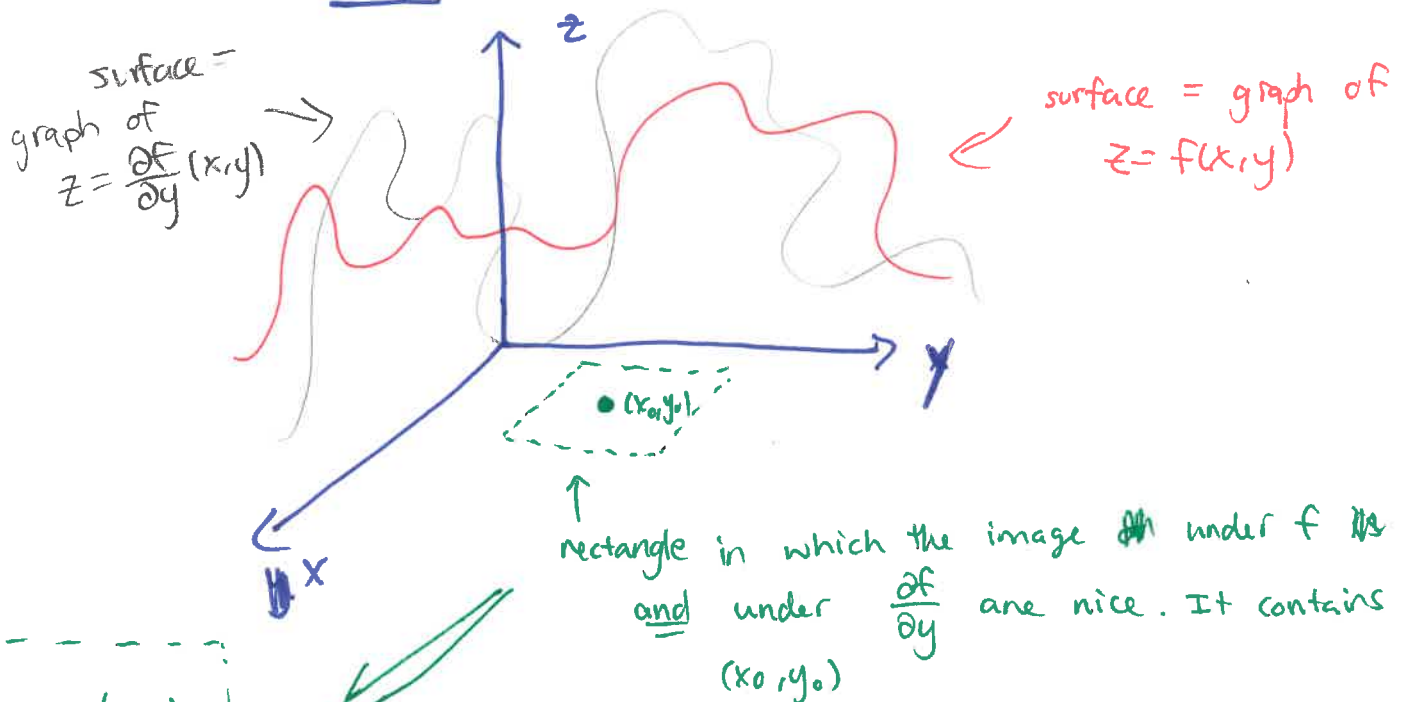 z
surface =
graph of
z = ∂f/∂y (x,y)
surface = graph of
z = f(x,y)
y
(x₀,y₀)
x
rectangle in which the image under f
and under ∂f/∂y are nice. It contains
(x₀,y₀)